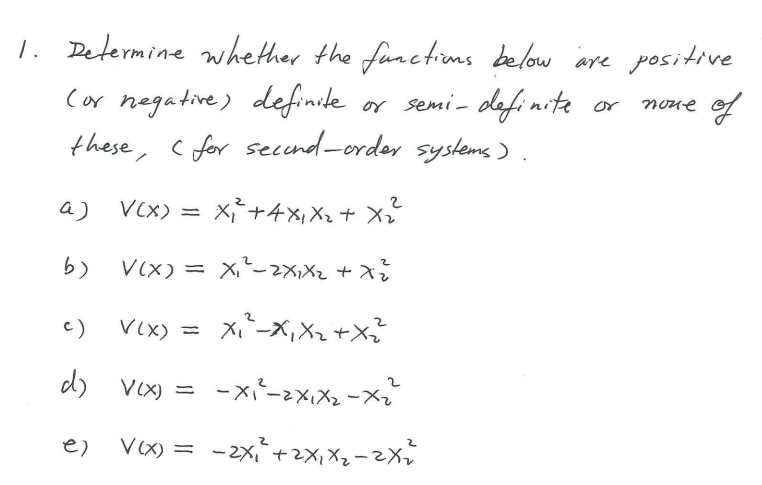 1. Determine whether the functions below are positive
(or negative) definite or semi-definite or none of
these, (for second-order systems).
a) V(x) = x₁² + 4x₁x₂ + x₂²
b) V(x) = x₁² - 2x₁x₂ + x₂²
c) V(x) = x₁² - x₁x₂ + x₂²
d) V(x) = -x₁² - 2x₁x₂ - x₂²
e) V(x) = -2x₁² + 2x₁x₂ - 2x₂²